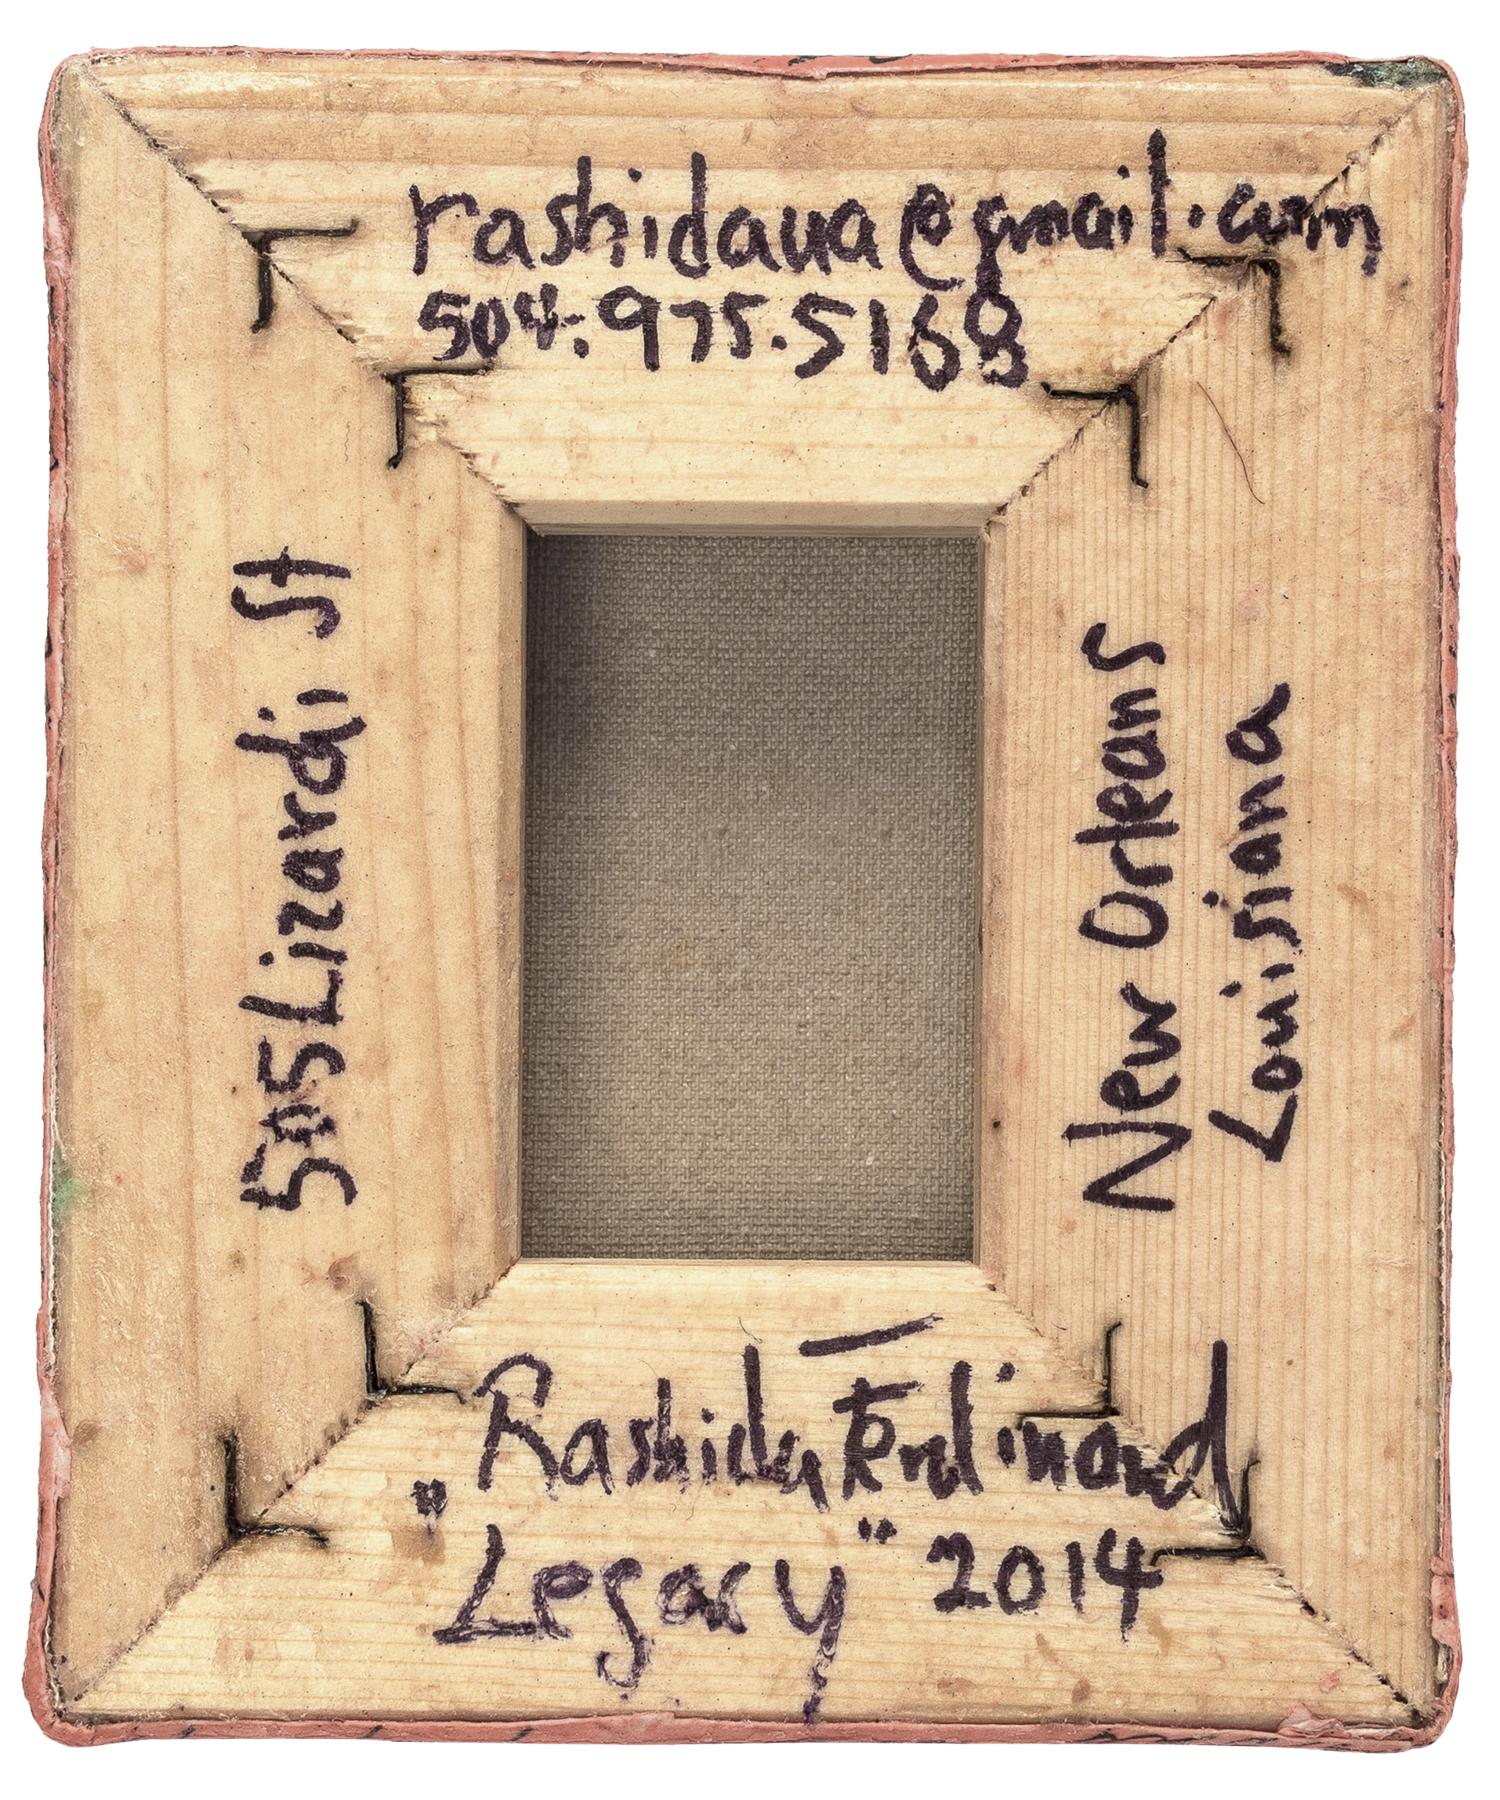 rashidaua@gmail.com
504.975.5168
505 Lizardi St
New Orleans
Louisiana
Rashida Ferdinand
"Legacy" 2014